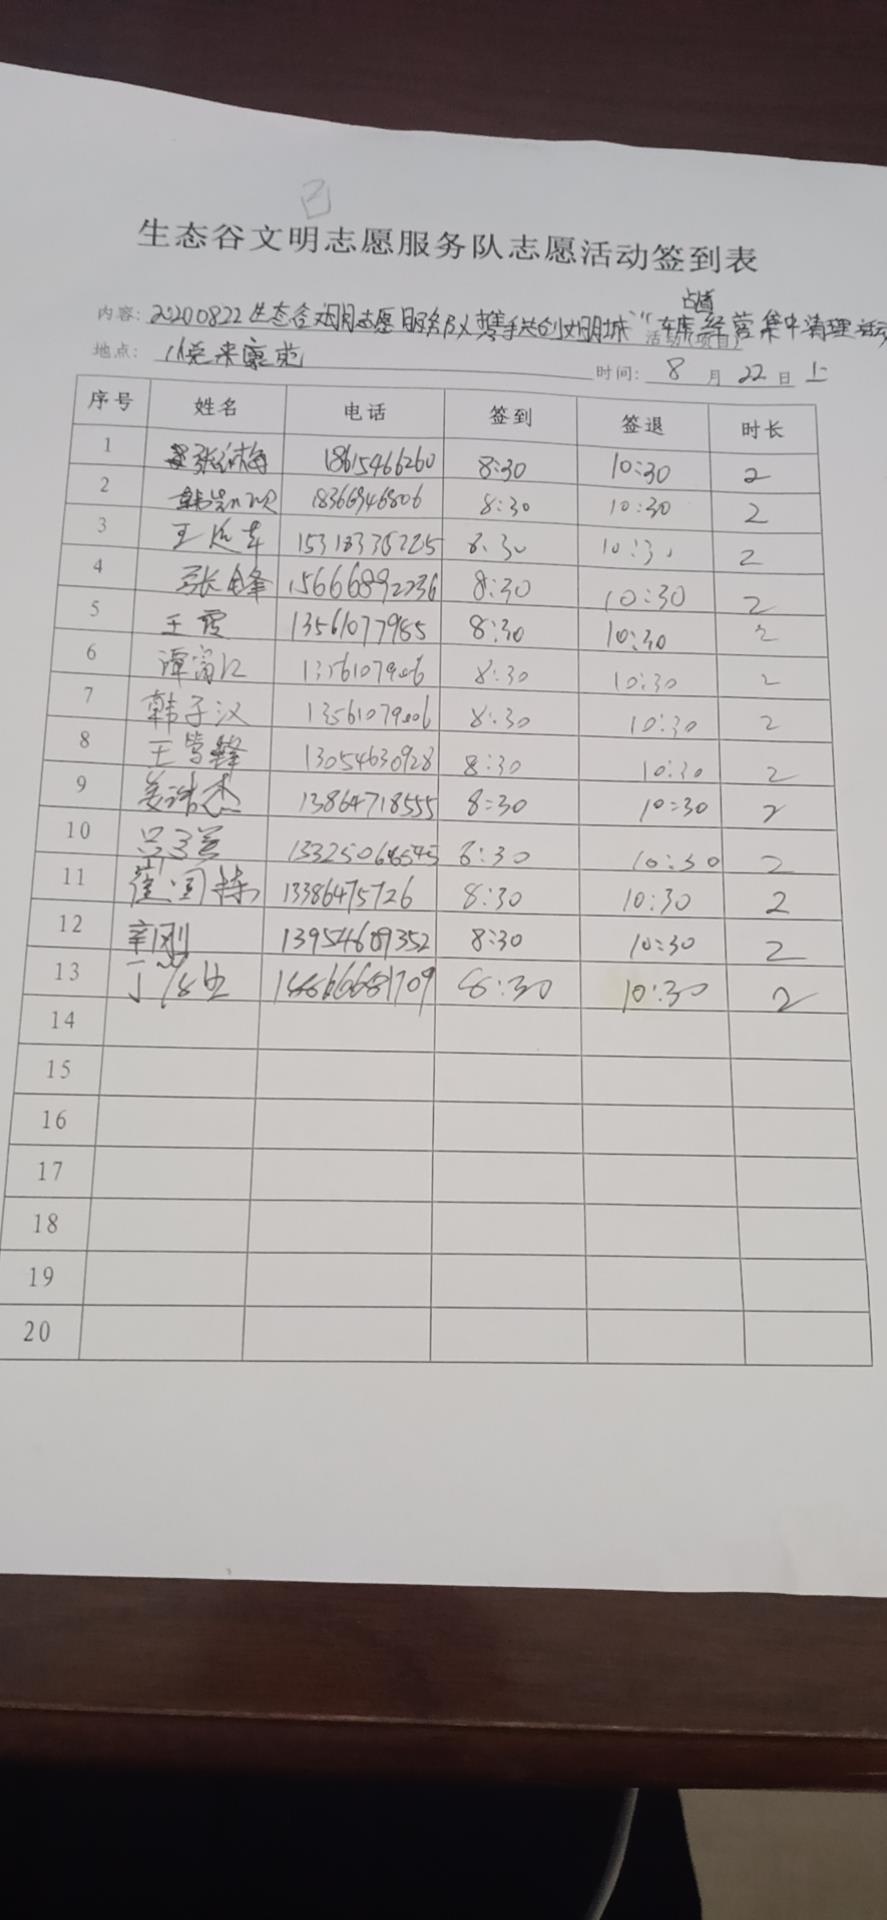 生态谷文明志愿服务队志愿活动签到表
占道
内容: 20200822生态谷文明志愿服务队携手共创文明城“车库经营集中清理活动
活动(项目)
地点: 悦来康苑 时间: 8 月 22 日 上
序号 姓名 电话 签到 签退 时长
1 18615466260 8:30 10:30 2
2 18366946806 8:30 10:30 2
3 8:30 10:30 2
4 张锋 15666892236 8:30 10:30 2
5 王霞 13561077955 8:30 10:30 2
6 谭富江 8:30 10:30 2
7 韩子汉 8:30 10:30 2
8 13054630928 8:30 10:30 2
9 姜浩杰 13864718555 8:30 10:30 2
10 8:30 10:30 2
11 13386475726 8:30 10:30 2
12 辛刚 13954609352 8:30 10:30 2
13 8:30 10:30 2
14
15
16
17
18
19
20